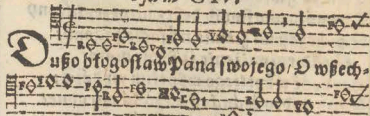 Duſzo błogoſław Páná ſwojego/ O wßech-